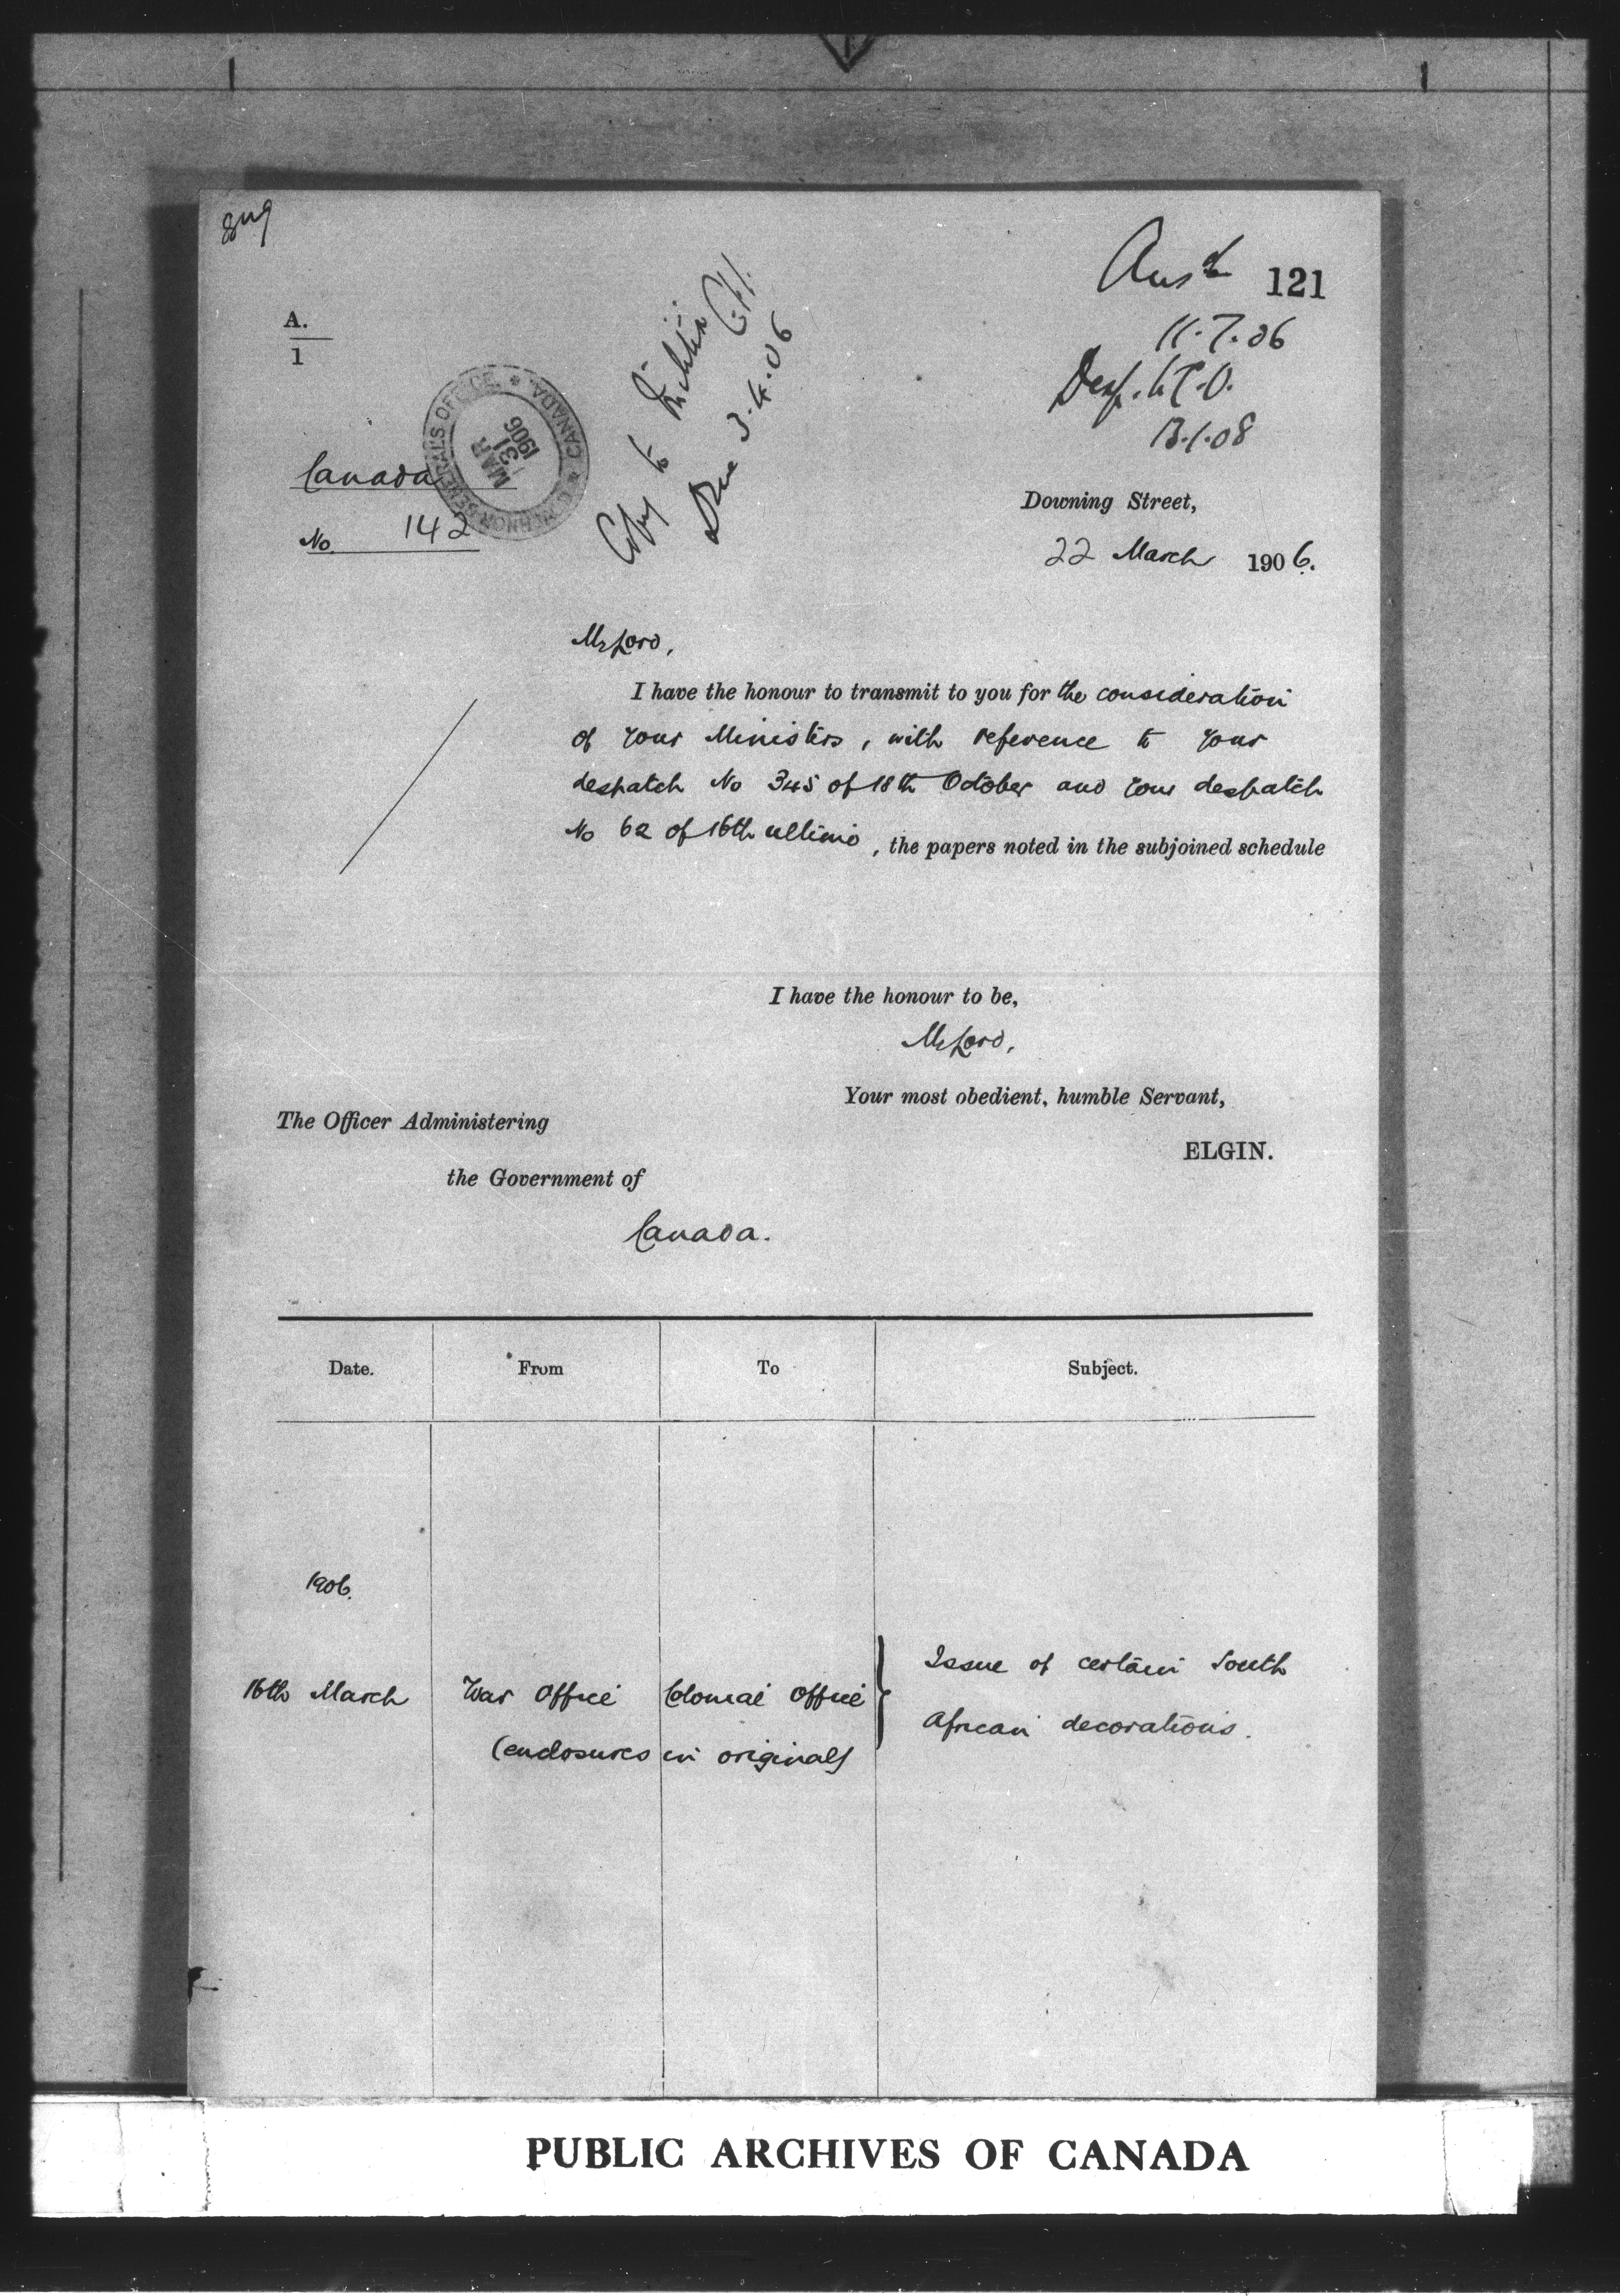 Ansd 121
11.7.06
13.1.08
A.
1
GOVERNOR GENERAL'S OFFICE * CANADA *
MAR
31
1906
Copy to Militia
3.4.06
Canada
No. 142
Downing Street,
22 March 1906.
My Lord,
I have the honour to transmit to you for the consideration
of your Ministers, with reference to your
despatch No 345 of 18th October and your despatch
No 62 of 16th ultimo, the papers noted in the subjoined schedule
I have the honour to be,
My Lord,
Your most obedient, humble Servant,
ELGIN.
The Officer Administering
the Government of
Canada.
Date. From To Subject.
1906.
16th March War Office Colonial Office Issue of certain South
African decorations.
(enclosures in original)
PUBLIC ARCHIVES OF CANADA